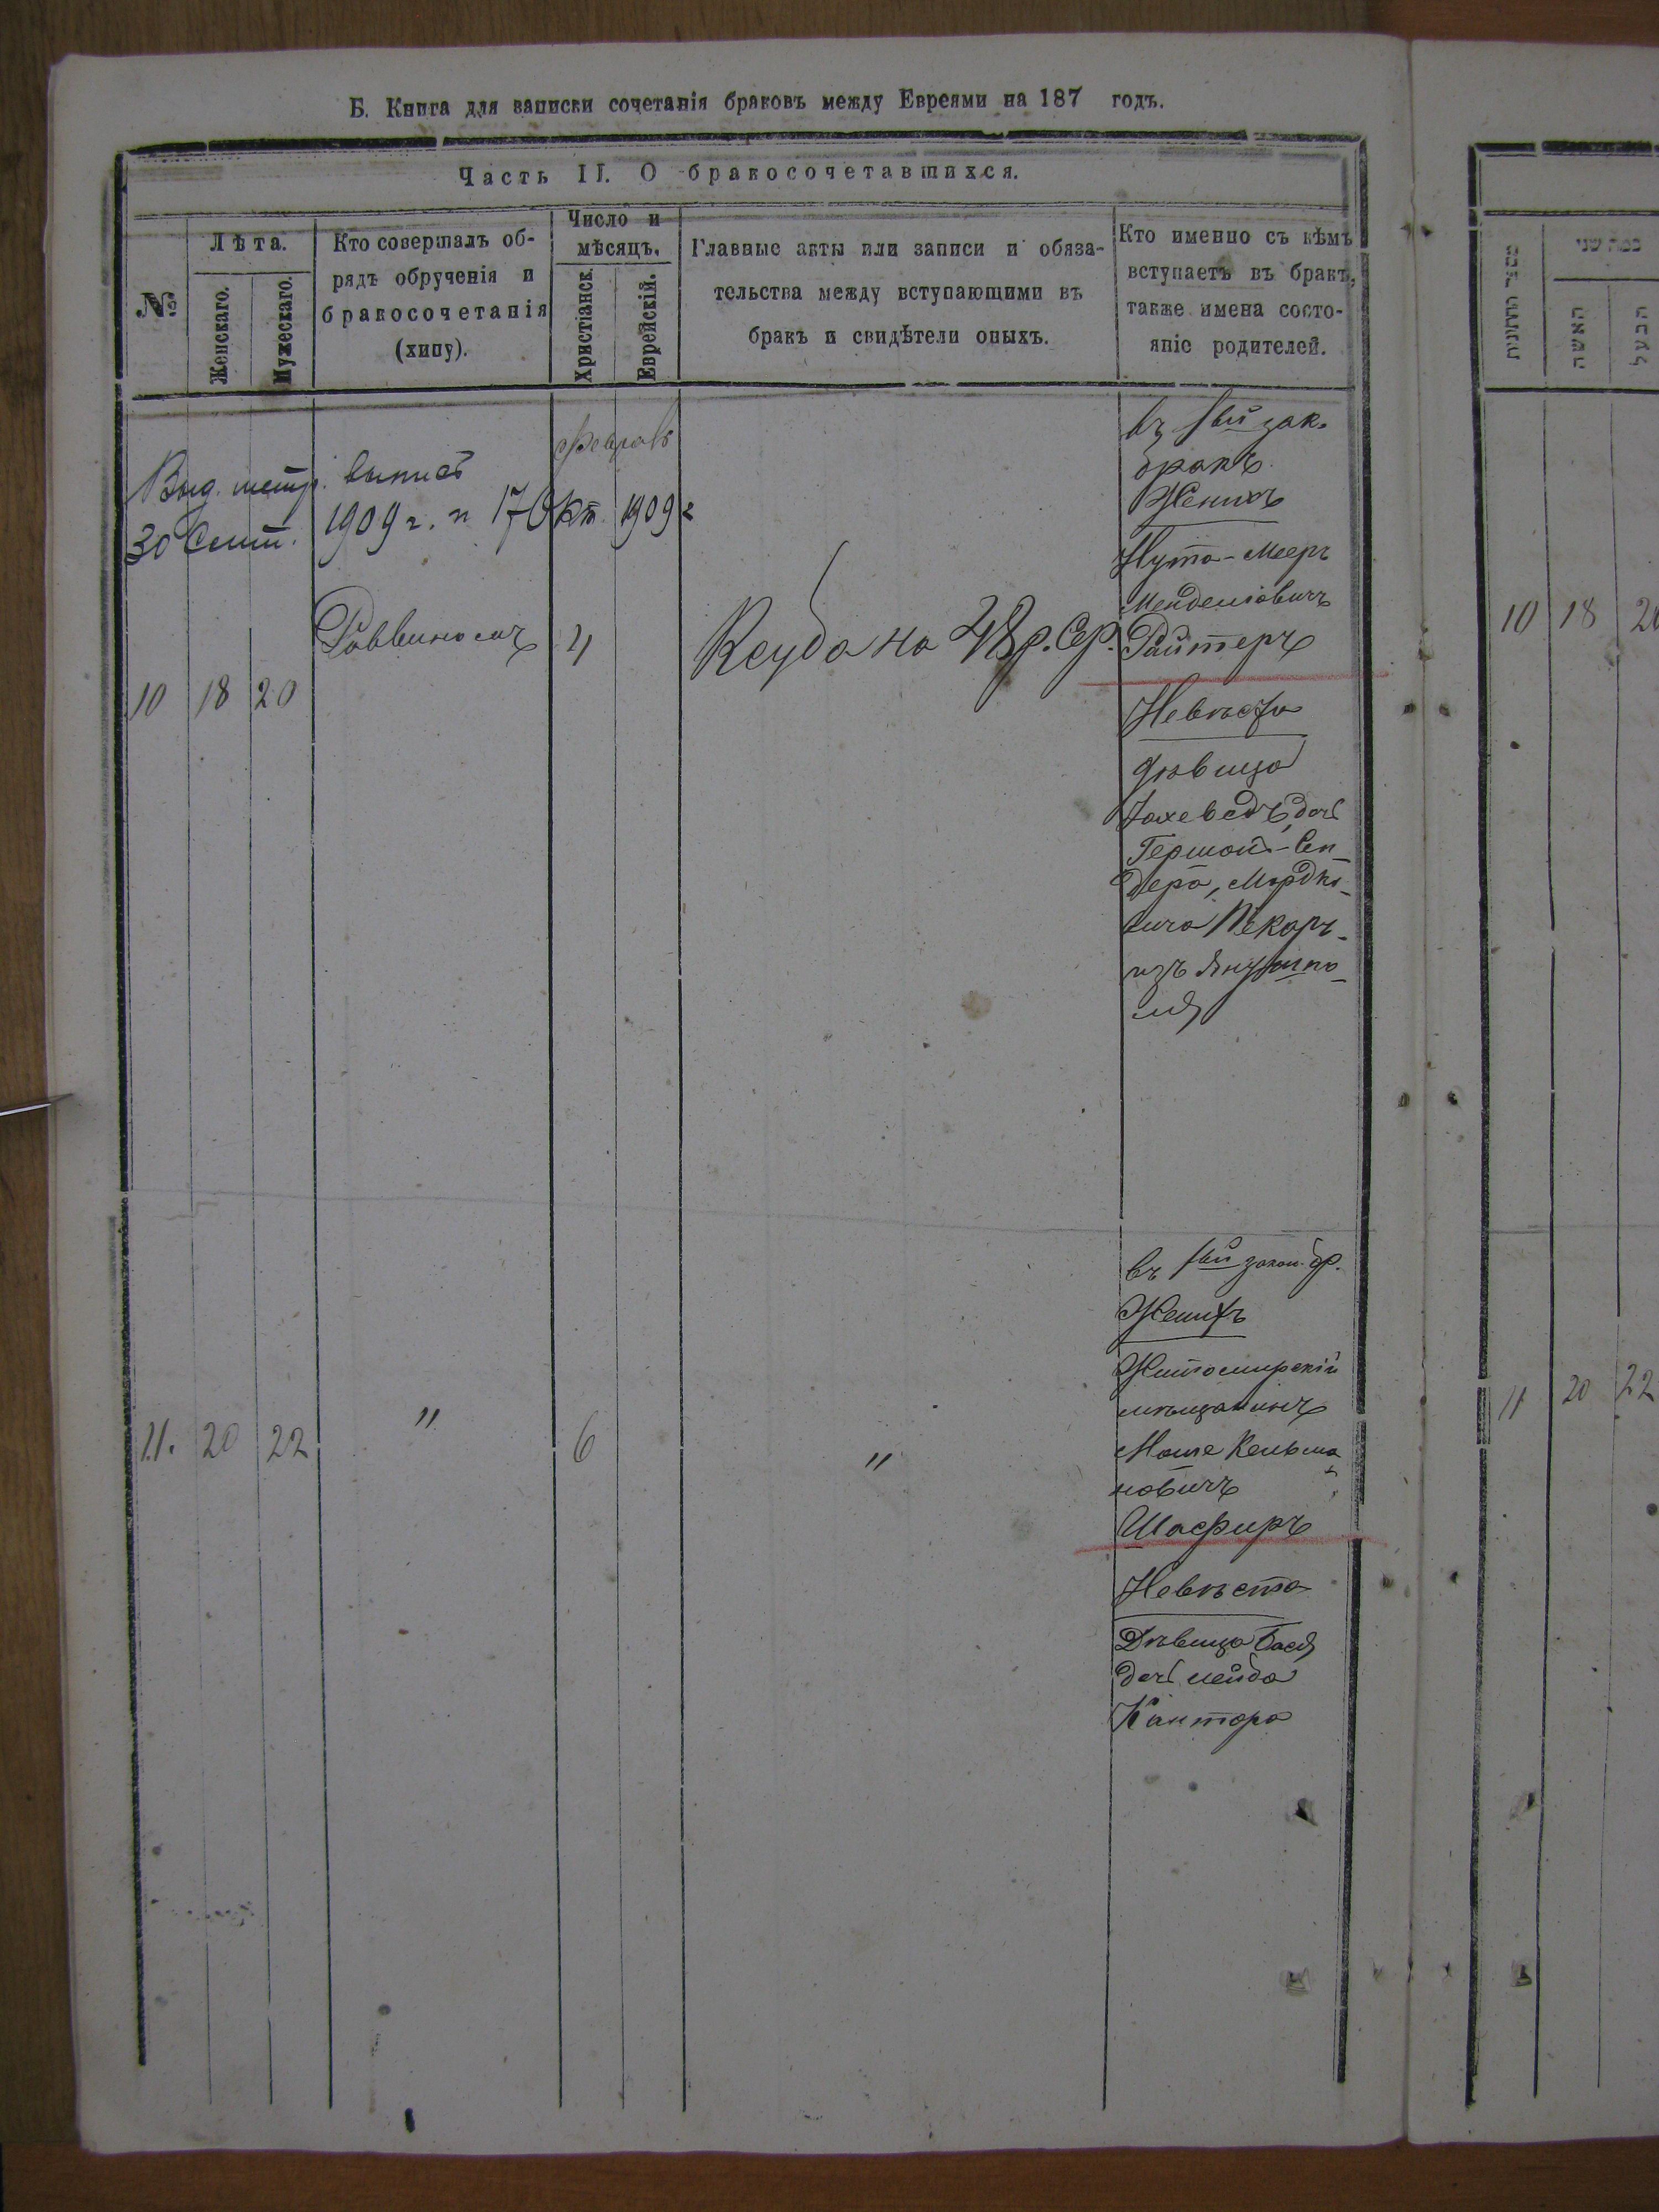 Б. Книга для записки сочетанія браковъ между Евреями на 187 годъ.
Часть II. О бракосочетавшихся.
№
Лѣта.
Женскаго.
Мужескаго.
Кто совершалъ об-
рядъ обрученія и
бракосочетанія
(хипу).
Число и
мѣсяцъ.
Христіанск.
Еврейскій.
Главные акты или записи и обяза-
тельства между вступающими въ
бракъ и свидѣтели оныхъ.
Кто именно съ кѣмъ
вступаетъ въ бракъ,
также имена состо-
яніе родителей.
Февраль
Выд. метр. выпись
30 Сент. 1909 г. и 17 Окт. 1909 г
10 18 20
Раввиномъ
4
Ксуба на 48 р. Сер.
въ 1ый зак.
бракъ
Женихъ
Нута-Мееръ
Менделіовичъ
Райтеръ
Невѣста
дѣвица
Iохеведъ, дочь
Гершой-Сен
дера, Мордко-
вича Пекаръ
изъ Янушпо-
ля
11. 20 22
"
6
"
въ 1ый закон. бр.
Женихъ
Житомирскій
мѣщанинъ
Моше Кельма
новичъ
Шафиръ
Невѣста
Дѣвица Бася
дочь Лейба
Кантора
האשה
הבעל
10 18 20
11 20 22